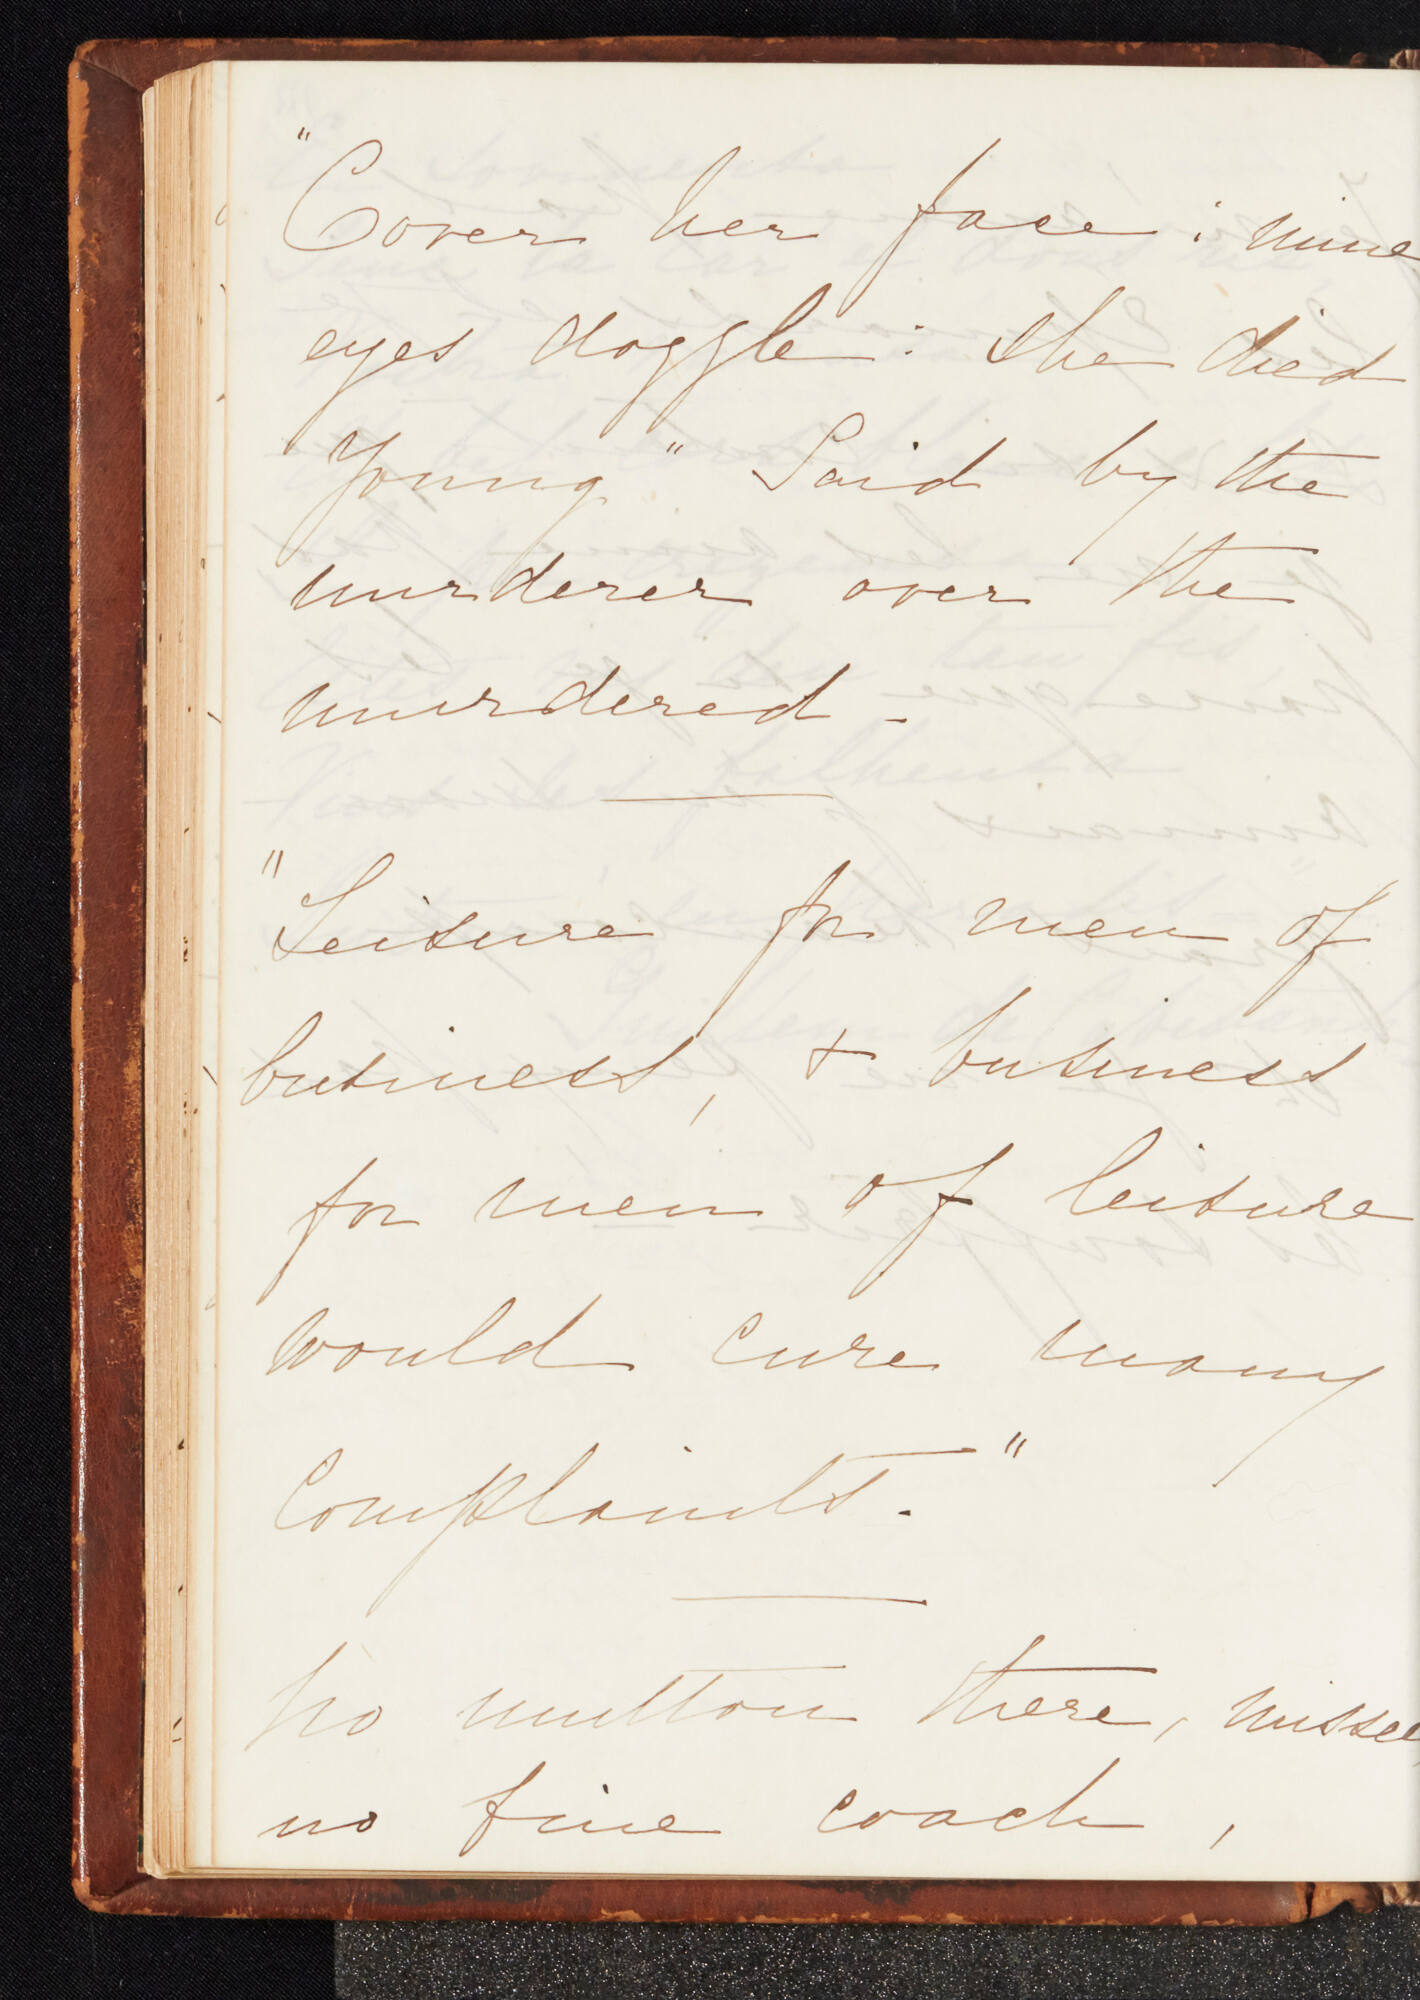 "Cover her face : mine
eyes doggle : she died
young" Said by the
murderer over the
murdered -
"Leisure for men of
business, & business
for men of leisure
would cure many
complaints."
No mutton there, missee,
no fine coach,